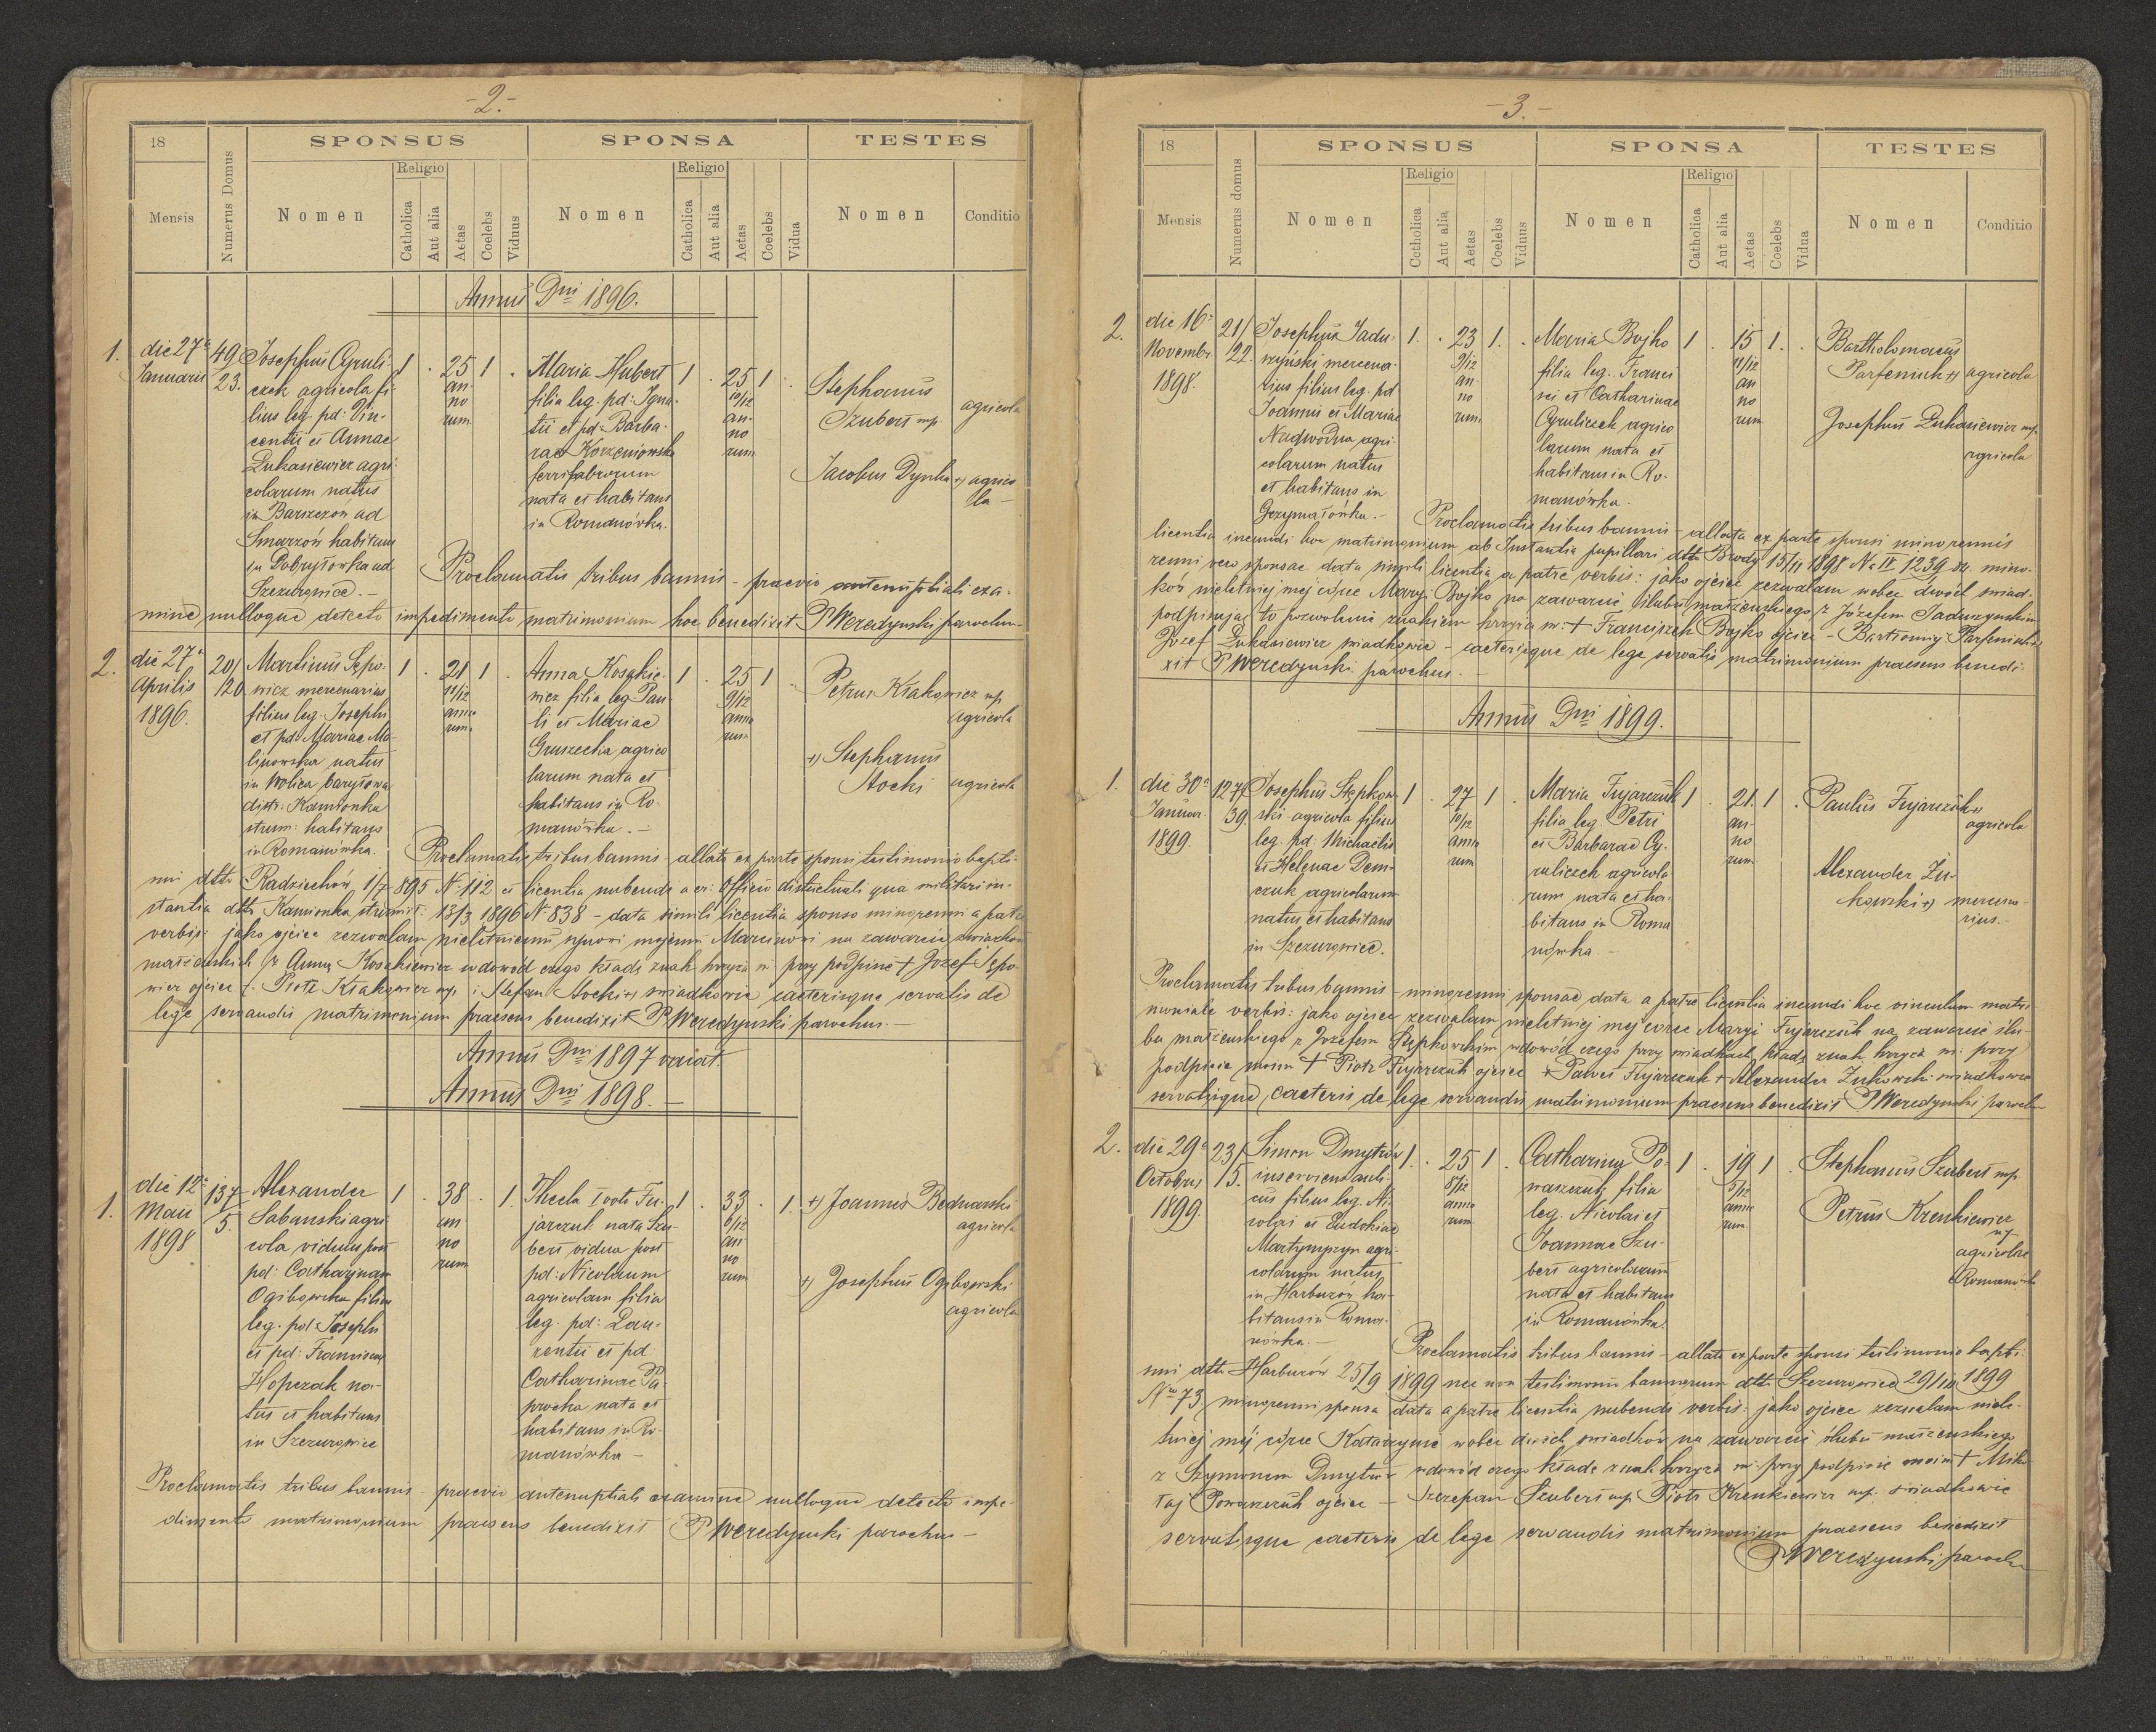 -2.-
18
SPONSUS
SPONSA
TESTES
Mensis
Numerus Domus
Nomen
Religio
Catholica
Aut alia
Aetas
Coelebs
Viduus
Nomen
Religio
Catholica
Aut alia
Aetas
Coelebs
Vidua
Nomen
Conditio
Annus Dni 1896.
1.
die 27a
Januarii
49/
23.
Josephus Cyruli-
czek agricola fi-
lius leg. pd: Vin-
centii et Annae
Łukasiewicz agri-
colarum natus
in Barszczow ad
Smarzów habitans
in Dobryłówka ad
Szczurowice. -
1 . 25 1 .
an-
no
rum
Maria Hubert
filia leg. pd: Igna-
tii et pd: Barba-
rae Korzeniowska
ferrifabrorum
nata et habitans
in Romanówka.
1 . 25 1 .
10/12
an-
no
rum
Stephanus
Szubert mp.
agricola
Jacobus Dynka +) agrico
la -
Proclamatis tribus bannis - praevio antenuptiali exa-
mine nulloque detecto impedimento matrimonium hoc benedixit P Weredynski parochus
2.
die 27a
Aprilis
1896.
20/
120
Martinus Sępo-
wicz mercenarius
filius leg. Josephi
et pd: Mariae Ma-
linowska natus
in Wolica baryłowa
distr: Kamionka
strum: habitans
in Romanówka.
1 . 21 1 .
11/12
anno
rum.
Anna Koszkie-
wicz filia leg. Pau-
li et Mariae
Gruszecka agrico
larum nata et
habitans in Ro-
manówka. -
1 . 25 1 .
9/12
anno
rum
Petrus Krakowicz mp
agricola
+) Stephanus
Hocki agricola
Proclamatis tribus bannis - allato ex parte sponsi testimonio bapti-
smi dtto Radziechów 1/7 895 N: 112 et licentia nubendi a cr: officio districtuali qua militari in-
stantia dtto Kamionka strumił: 13/3 1896 N 838 - data simili licentia sponso minorenni a patre
verbis: jako ojciec zezwalam nieletniemu synowi mojemu Marcinowi na zawarcie związków
małżeńskich z Anną Koszkiewicz w dowód czego kładę znak krzyża ś. przy podpisie + Józef Sępo-
wicz ojciec. Piotr Krakowicz mp. i Stefan Hocki +) świadkowie caeterisque servatis de
lege servandis matrimonium praesens benedixit P Weredynski parochus. -
Annus Dni 1897 vacat.
Annus Dni 1898. -
1.
die 12a
Maii
1898
137/
5.
Alexander
Sabanski agri-
cola viduus post
pd: Catharinam
Ogibowska filius
leg. pd: Josephi
et pd: Franciscae
Hopczak na-
tus et habitans
in Szczurowice
1 . 38 . 1.
an
no
rum
Thecla I voto Fu-
jarczuk nata Szu-
bert vidua post
pd: Nicolaum
agricolam filia
leg. pd: Lau-
rentii et pd.
Catharinae Pa-
procka nata et
habitans in Ro-
manówka -
1 . 33 . 1.
6/12
an-
no
rum
+) Joannes Bednarski
agricola
+) Josephus Ogibowski
agricola
Proclamatis tribus bannis - praevio antenuptiali examine nulloque detecto impe-
dimento matrimonium praesens benedixit P Weredynski parochus -
-3.-
18
SPONSUS
SPONSA
TESTES
Mensis
Numerus domus
Nomen
Religio
Catholica
Aut alia
Aetas
Coelebs
Viduus
Nomen
Religio
Catholica
Aut alia
Aetas
Coelebs
Vidua
Nomen
Conditio
2.
die 16a
Novembr.
1898.
21/
22.
Josephus Jadu-
szyński mercena-
rius filius leg. pd
Joannis et Mariae
Nadwodna agri-
colarum natus
et habitans in
Grzymałówka. -
1. . 23 1. .
9/12
an-
no
rum
Maria Bojko
filia leg. Franci
sci et Catharinae
Cyruliczek agrico
larum nata et
habitans in Ro-
manówka.
1 . 15 1. .
11/12
an
no
rum
Bartholomaeus
Parfeniuk +) agricola
Josephus Łukasiewicz mp.
agricola
Proclamatis tribus bannis - allata ex parte sponsi minorennis
licentia ineundi hoc matrimonium ab Instantia pupillari dtto Brody 15/11 1898 N: IV 1239/98. mino-
renni vero sponsae data simili licentia a patre verbis: jako ojciec zezwalam wobec dwóch świad-
ków nieletniej mej córce Maryi Bojko na zawarcie ślubu małżeńskiego z Józefem Jaduszyńskim
podpisując to pozwolenie znakiem krzyża ś. + Franciszek Bojko ojciec - Bartłomiej Parfeniuk +)
Józef Łukasiewicz świadkowie - caeterisque de lege servatis matrimonium praesens benedi-
xit P Weredynski parochus. -
Annus Dni 1899.
1.
die 30a
Januar.
1899.
127/
39.
Josephus Stępkow-
ski agricola filius
leg. pd. Michaelis
et Helenae Dem-
czuk agricolarum
natus et habitans
in Szczurowice.
1 . 27 1 .
10/12
anno
rum
Maria Fujarczuk
filia leg. Petri
et Barbarae Cy-
ruliczek agricola
rum nata et ha-
bitans in Roma
nówka. -
1 . 21. 1 .
an-
no
rum
Paulus Fujarczuk +)
agricola
Alexander Żu-
kowski +) mercena-
rius. -
Proclamatis tribus bannis - minorenni sponsae data a patre licentia ineundi hoc vinculum matri-
moniale verbis: jako ojciec zezwalam nieletniej mej córce Maryi Fujarczuk na zawarcie ślu-
bu małżeńskiego z Józefem Stępkowskim w dowód czego przy świadkach kładę znak krzyża ś. przy
podpisie moim + Piotr Fujarczuk ojciec + Paweł Fujarczuk + Alexander Żukowski świadkowie
servatisque caeteris de lege servandis matrimonium praesens benedixit P Weredynski parochus
2.
die 29a
Octobris
1899.
23/
15.
Simon Dmytrów
inserviens auli-
cus filius leg. Ni-
colai et Eudokiae
Martynyszyn agri-
colarum natus
in Harbuzów ha-
bitans in Roma-
nówka. -
1. . 25 1 .
8/12
anno
rum
Catharina Po-
waszczuk filia
leg. Nicolai et
Joannae Szu-
bert agricolarum
nata et habitans
in Romanówka.
1 . 19 1 .
5/12
anno
rum
Stephanus Szubert mp
Petrus Krenkiewicz
mp.
agricolae
Romanówka
Proclamatis tribus bannis - allato ex parte sponsi testimonio bapti-
smi dtto Harbuzów 25/9 1899 nec non testimonio bannorum dtto Szczurowice 29/10 1899
Nro 73. minorenni sponsa data a patre licentia nubendi verbis: jako ojciec zezwalam niele-
tniej mej córce Katarzynie wobec dwóch świadków na zawarcie ślubu małżeńskiego
z Szymonem Dmytrów w dowód czego kładę znak krzyża ś. przy podpisie moim + Miko
łaj Powaszczuk ojciec - Szczepan Szubert mp. Piotr Krenkiewicz mp. świadkowie
servatisque caeteris de lege servandis matrimonium praesens benedixit
P Weredynski parochus